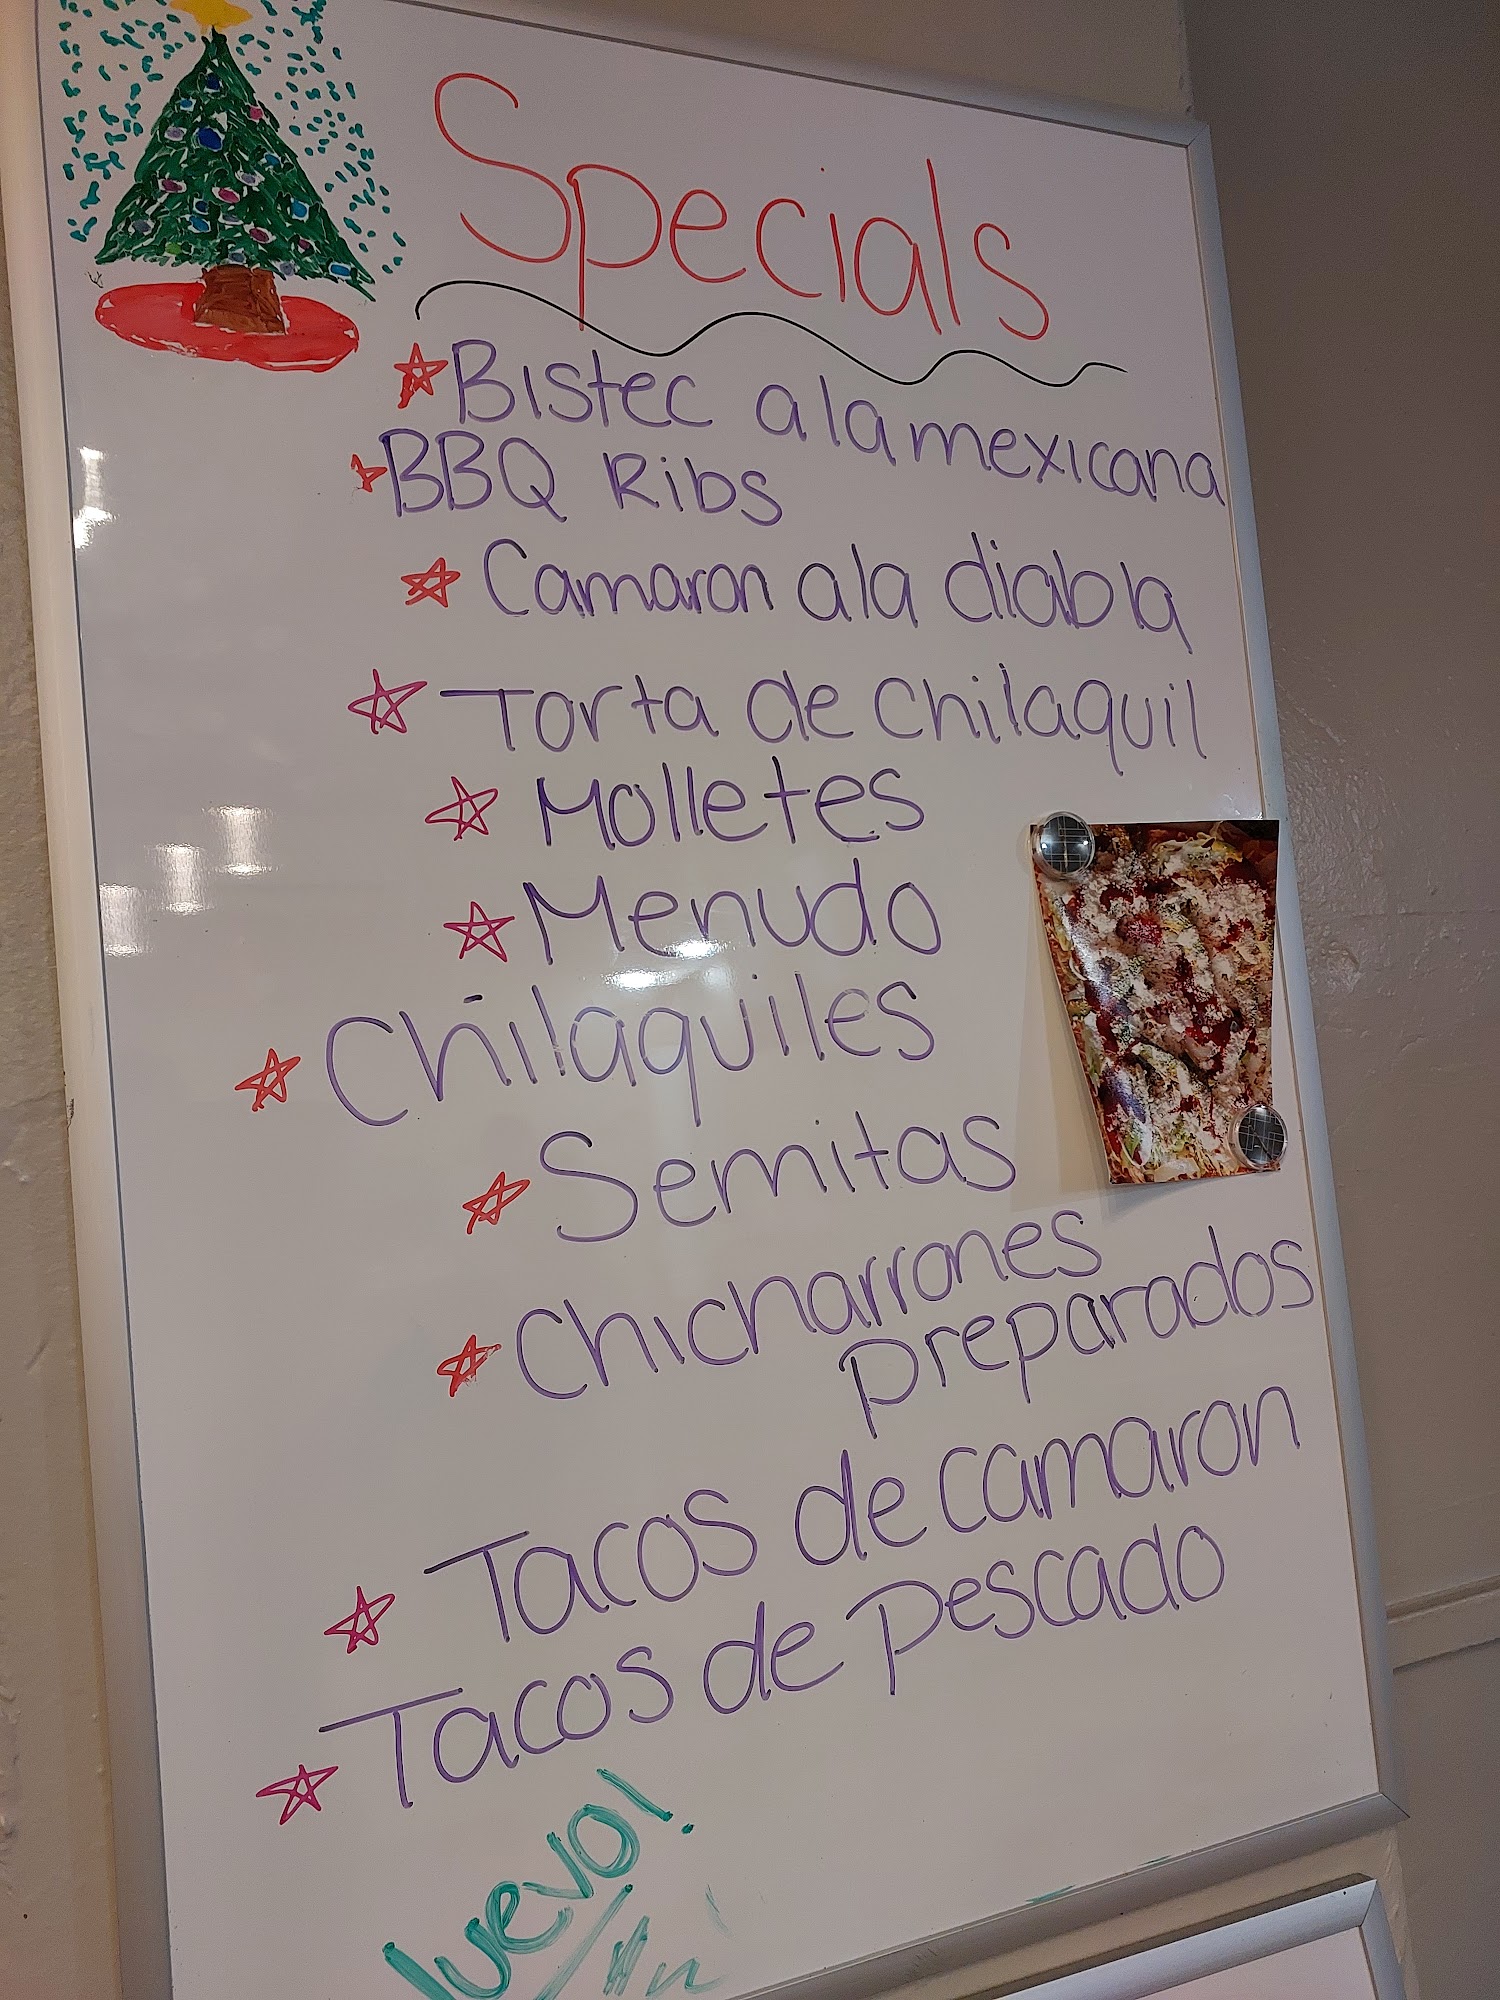 Specials
Bistec a la mexicana
BBQ Ribs
Camaron a la diabla
Torta de chilaquil
Molletes
Menudo
Chilaquiles
Semitas
Chicharrones
preparados
Tacos de camaron
Tacos de Pescado
Nuevo!